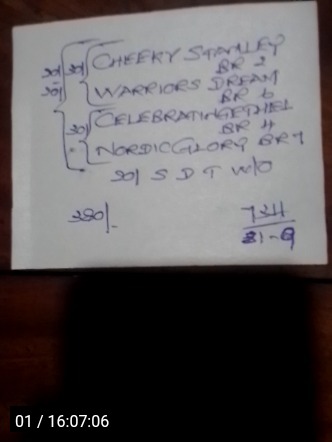 20/ 20/ CHEEKY STANLEY
BR 2
20/ WARRIORS DREAM
BR 6
20/ CELEBRATINGETHEL
BR 4
NORDICGLORY BR 7
20/ S D T W/O
380/-
734
31-9
01 / 16:07:06